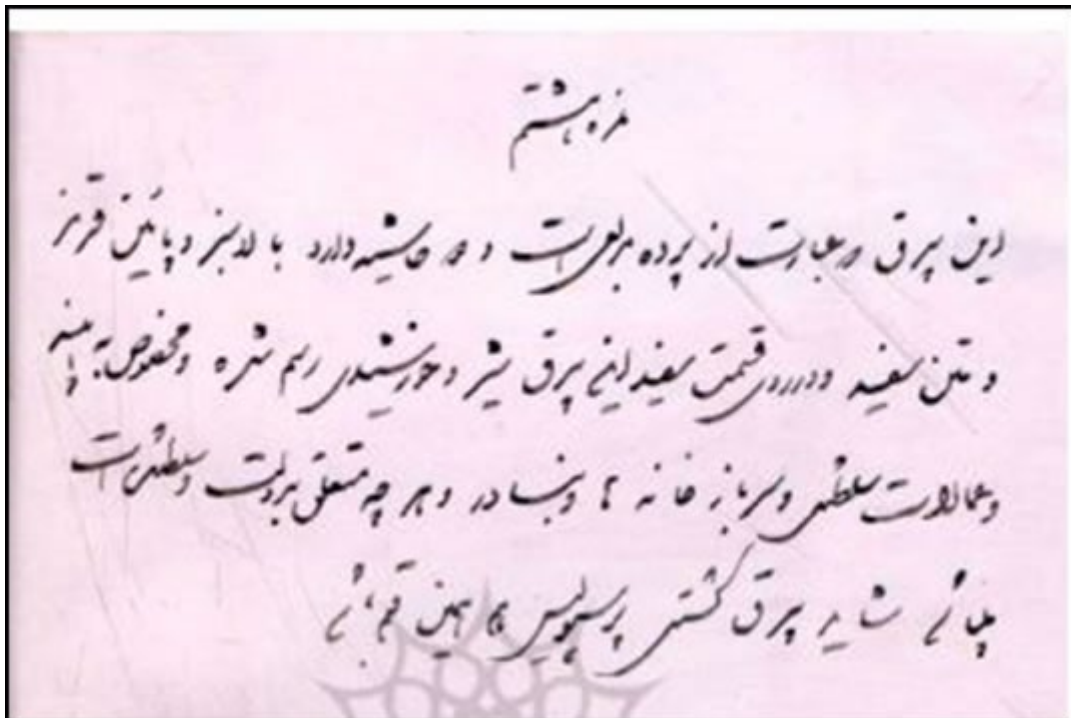 نمره هشتم
این بیرق عبارت از پرده مربعی است و دو حاشیه دارد بالا سبز و پائین قرمز
و متن سفید و در روی قسمت سفید این بیرق شیر و خورشیدی رسم شده و مخصوص به ابنیه
و عمارات سلطنتی و سربازخانه ها و بنادر و هر چه متعلق بدولت و سلطنت است
میباشد شاید بیرق کشتی پرسپولیس هم همین قسم باشد